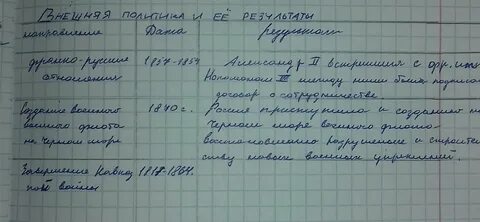 Внешняя политика и её результаты
направление Дата результат
франко-русские 1857-1857 Александр II встретился с фр. имп.
отношения Наполеоном III между ними был подписан
договор о сотрудничестве.
Создание военного 1870 г. Россия приступила к созданию на
военного флота Черном море военного флота
на Черном море восстановлению разрушенных и строитель
ству новых военных укреплений.
Завершение Кавказ 1817-1864.
кой войны